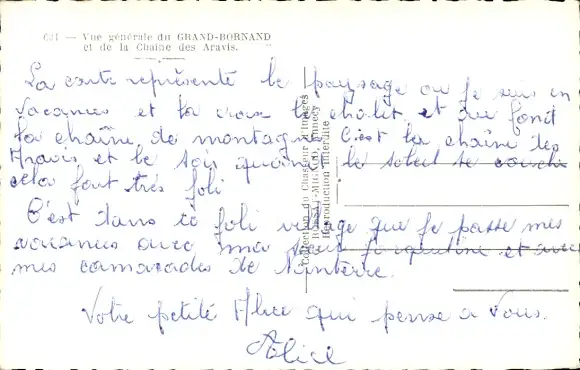 621 — Vue générale du GRAND-BORNAND
et de la Chaîne des Aravis.
La carte représente le paysage ou je suis en
vacances et la croix le châlet et au fond
la chaîne de montagne C'est la chaîne des
Aravis et le soir quand le soleil se couche
cela fait très joli
C'est dans ce joli village que je passe mes
vacances avec ma sœur et avec
mes camarades de Nanterre.
Votre petite Alice qui pense a vous.
Alice
Collection du Chasseur d'Images
Reproduction interdite